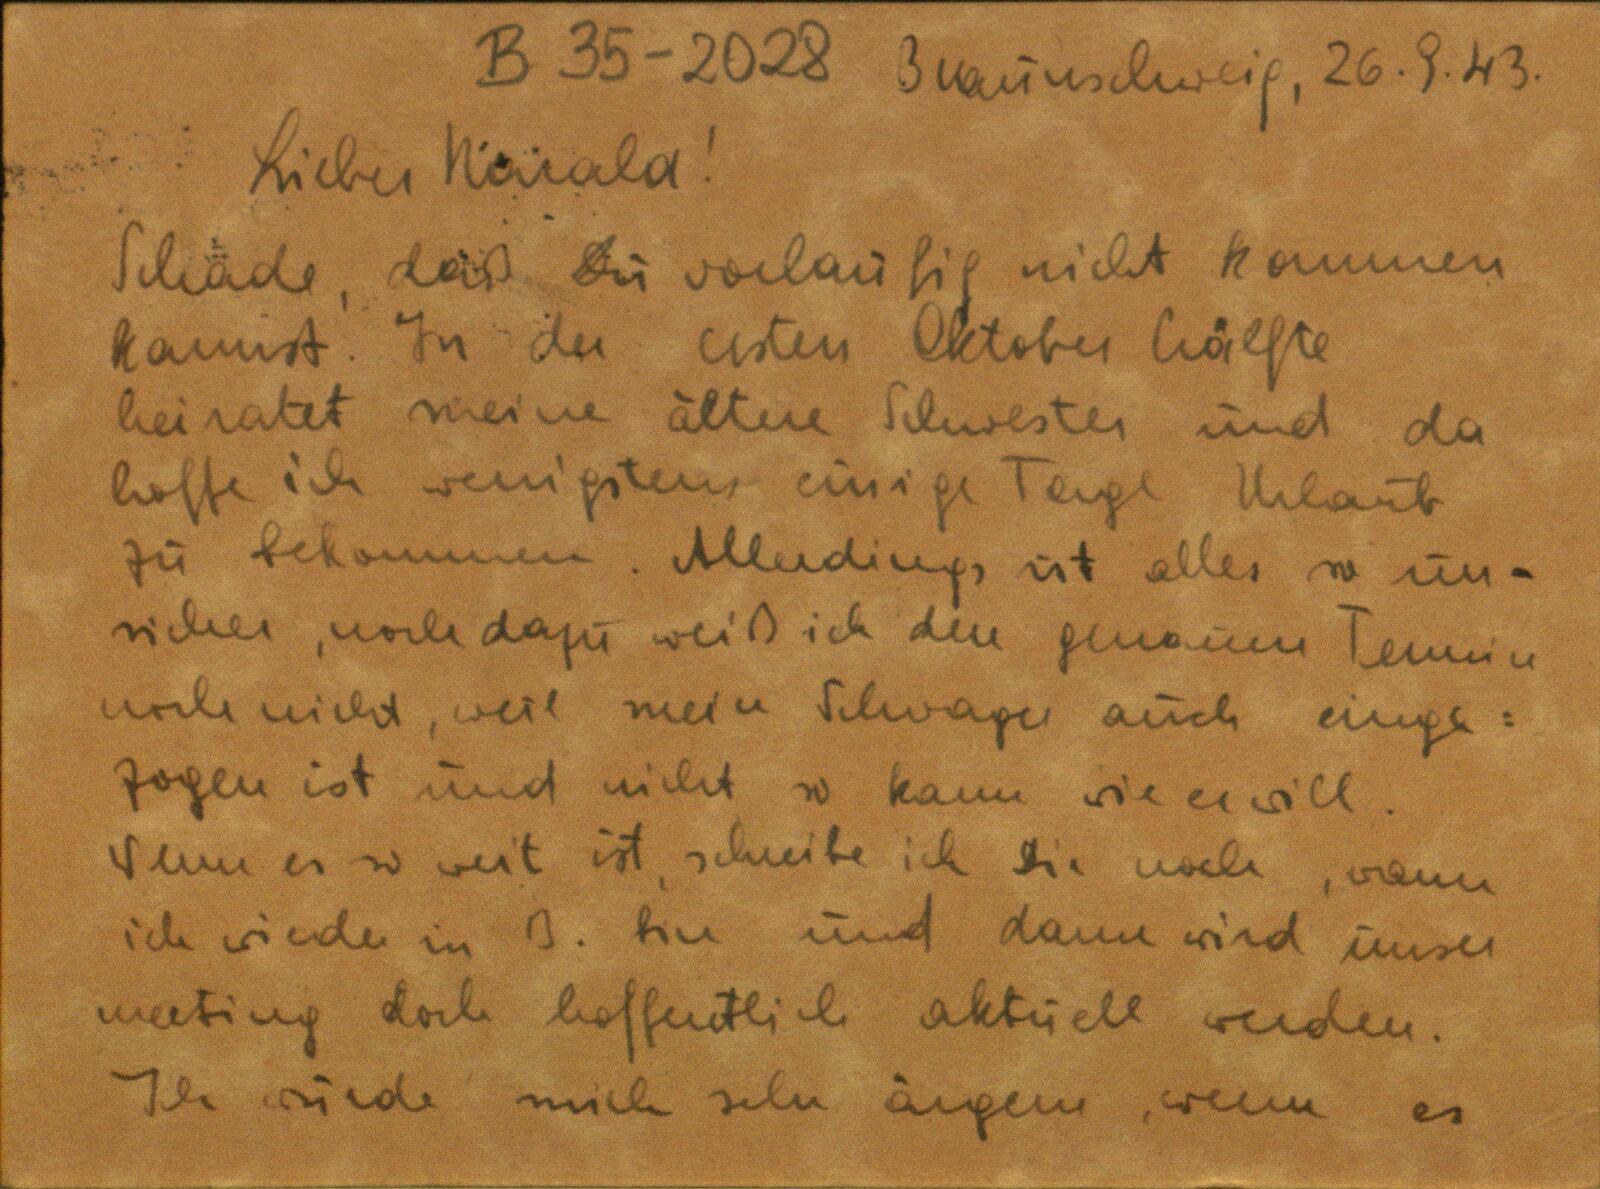 B 35-2028 Braunschweig, 26.9.43.
Lieber Harald!
Schade, daß Du vorläufig nicht kommen
kannst. In der ersten Oktober hälfte
heiratet meine ältere Schwester und da
hoffe ich wenigstens einige Tage Urlaub
zu bekommen. Allerdings ist alles so un-
sicher, noch dazu weiß ich den genauen Termin
noch nicht, weil mein Schwager auch einge=
zogen ist und nicht so kann wie er will.
Wenn es so weit ist, schreibe ich Dir noch, wann
ich wieder in B. bin und dann wird unser
meeting doch hoffentlich aktuell werden.
Ich würde mich sehr ärgern, wenn es